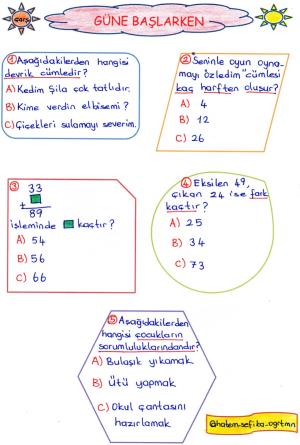 Çarş.
GÜNE BAŞLARKEN
① Aşağıdakilerden hangisi
devrik cümledir?
A) Kedim Şila çok tatlıdır.
B) Kime verdin elbisemi?
C) Çiçekleri sulamayı severim.
② "Seninle oyun oyna-
mayı özledim" cümlesi
kaç harften oluşur?
A) 4
B) 12
C) 26
③ 33
+
89
işleminde kaçtır?
A) 54
B) 56
C) 66
④ Eksilen 49,
çıkan 24 ise fark
kaçtır?
A) 25
B) 34
C) 73
⑤ Aşağıdakilerden
hangisi çocukların
sorumluluklarındandır?
A) Bulaşık yıkamak
B) Ütü yapmak
C) Okul çantasını
hazırlamak
@hatem_sefika_ogrtmn